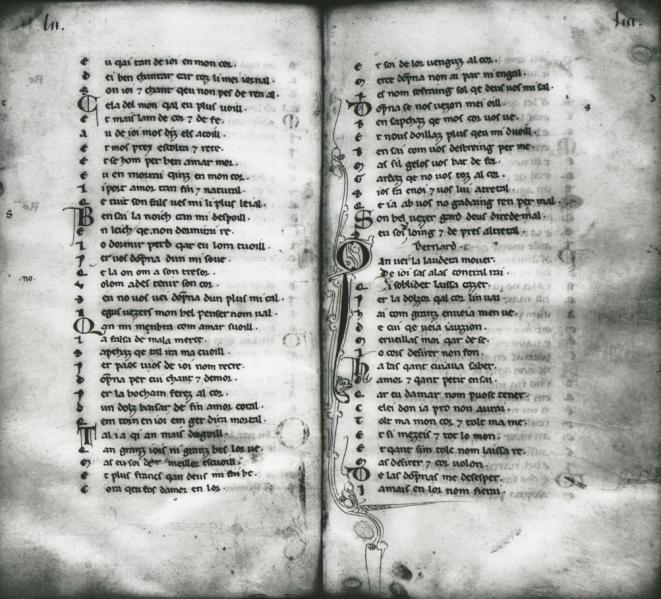 lii.
e u qai tan de ioi en mon cor.
d ei ben chantar car toz li mei iornal.
s on ioi ⁊ chant qeu non pes de ren al.
C ela del mon qal eu plus uoill.
e t mais lam de cor ⁊ de fe.
a u de ioi mos diz els acoill.
e t mos prex escolta ⁊ rete.
e t se hom per ben amar mor.
e u en morrai quinz en mon cor.
l i port amor tan fin ⁊ natural.
q e tuit son fals ues mi li plus leial.
B en sai la noich can mi despoill.
e n leich qe non dormirai re.
l o dormir perd qar eu lom tuoill.
p er uos dopna dun mi soue.
q e la on om a son tresor.
u olom ades tenir son cor.
s eu no uos uei dopna dun plus mi cal.
n egus uezers mon bel penser nom ual.
Q an mi menbra com amar suoill.
l a falsa de mala merce.
s apchaz qe tal ira ma cuoill.
p er pauc uios de ioi nom recre.
d opna per cui chant ⁊ demor.
p er la bocham ferez al cor.
u n dolz baisar de fin amor coral.
q em torn en ioi em get dira mortal.
T al ia qi an mais dorgoill.
q an granz iois ni granz bes lor ue.
m as eu soi de meillor escuoill.
e t plus francs qan deus mi fai be.
c ora qeu fos damor en lor.
liii.
e r soi de lor uenguz al cor.
m erce dopna non ai par ni engal.
r es nom sofraing sol qe deus uos mi sal.
D opna se nos uezon mei oill.
b en sapchaz qe mos cor uos ue.
e t nous doillaz plus qeu mi duoill.
q en sai com uos destreing per me
m as sil gelos uos bat de for.
g ardaz qe no uos toz al cor.
s ios fa enoi ⁊ uos lui atretal.
e ia ab uos no gadaing ren per mal.
S on bel uezer gard deus diredemal.
q eu soi loing ⁊ de pres altretal.
bernard.
Q an uei la laudeta mouer.
De ioi sas alas contral rai.
q i soblidet laissa cazer.
p er la dolzor qal cor lin uai
a i com granz enueia men ue.
d e cui qe ueia iauzion.
m erueillas mai qar de se.
l o cors desirer non fon.
H a las qant cuiaua saber.
d amor ⁊ qant petit en sai.
q ar eu damar nom puosc tener.
c elei don ia pro non aurai.
t olt ma mon cor ⁊ tolt ma me.
e t si mezeis ⁊ tot lo mon.
e t qant sim tolc nom laissa re.
m as desirer ⁊ cor uolon.
D e las dopnas me desesper.
i amais en lor nom fierai.
no.